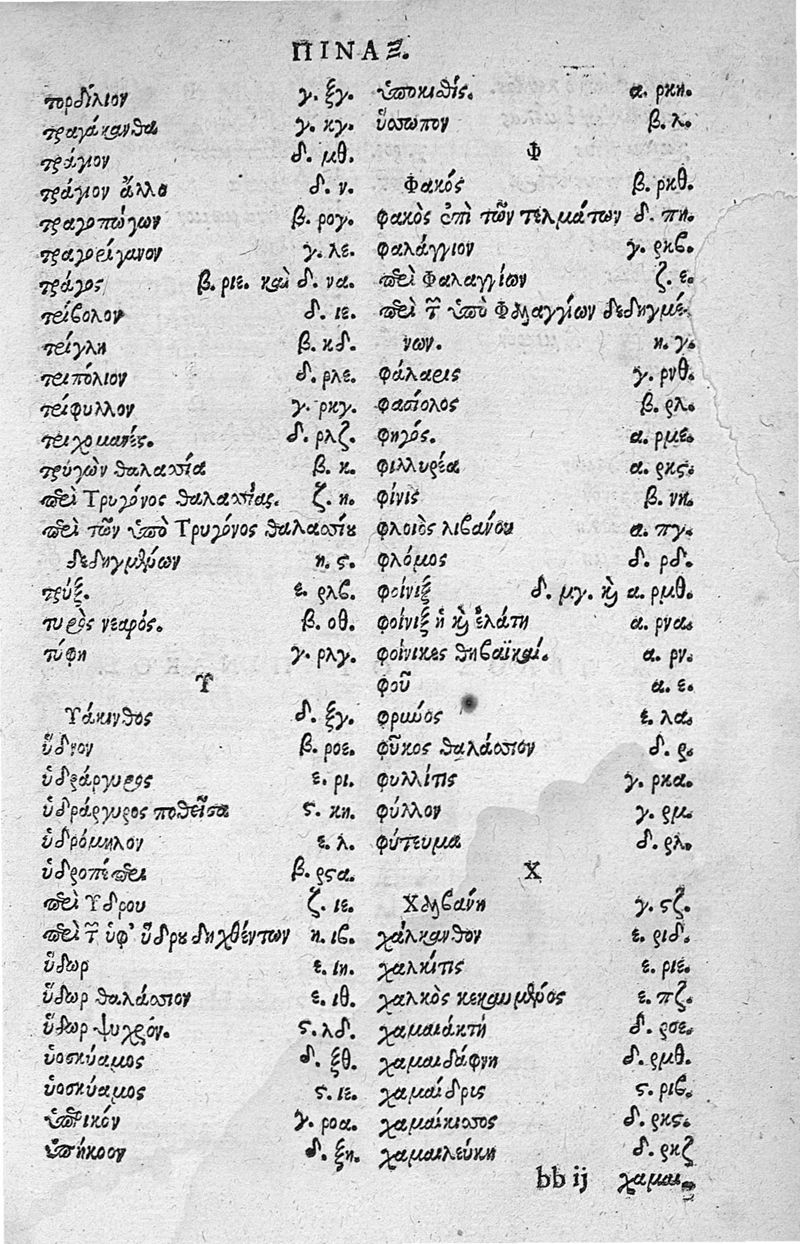 ΠΙΝΑΞ.
τορδύλιον γ. ξγ.
τραγάκανθα γ. κγ.
τράγιον δ. μθ.
τράγιον ἄλλο δ. ν.
τραγοπώγων β. ρογ.
τραγορίγανον γ. λε.
τράγος β. ριε. καὶ δ. να.
τρίβολον δ. ιε.
τρίγλη β. κδ.
τριπόλιον δ. ρλε.
τρίφυλλον γ. ρκγ.
τριχομανές. δ. ρλζ.
τρυγὼν θαλασσία β. κ.
περὶ Τρυγόνος θαλασσίας. ζ. η.
περὶ τῶν ὑπὸ Τρυγόνος θαλασσίου
δεδηγμένων η. ς.
τρύξ. ε. ρλβ.
τυρὸς νεαρός. β. οθ.
τύφη γ. ρλγ.
Υ
Υάκινθος δ. ξγ.
ὕδνον β. ροε.
ὑδράργυρος ε. ρι.
ὑδράργυρος ποθεῖσα ς. κη.
ὑδρόμηλον ε. λ.
ὑδροπέπερι β. ρςα.
περὶ Υδρου ζ. ιε.
περὶ τῶν ὑφ' ὕδρου δηχθέντων η. ιβ.
ὕδωρ ε. ιη.
ὕδωρ θαλάσσιον ε. ιθ.
ὕδωρ ψυχρόν. ς. λδ.
ὑοσκύαμος δ. ξθ.
ὑοσκύαμος ς. ιε.
ὑπερικόν γ. ροα.
ὑπήκοον δ. ξη.
ὑποκιθίς. α. ρκη.
ὕσσωπον β. λ.
Φ
Φακός β. ρκθ.
φακὸς ἐπὶ τῶν τελμάτων δ. πη.
φαλάγγιον γ. ρκβ.
περὶ Φαλαγγίων ζ. ε.
περὶ τῶν ὑπὸ Φαλαγγίων δεδηγμέ-
νων. η. γ.
φάλαρις γ. ρνθ.
φασίολος β. ρλ.
φηγός. α. ρμε.
φιλλυρέα α. ρκς.
φίνις β. νη.
φλοιὸς λιβάνου α. πγ.
φλόμος δ. ρδ.
φοίνιξ δ. μγ. καὶ α. ρμθ.
φοίνιξ ἡ καὶ ἐλάτη α. ρνα.
φοίνικες θηβαϊκαί. α. ρν.
φοῦ α. ε.
φρύνος ε. λα.
φῦκος θαλάσσιον δ. ρ.
φυλλίτις γ. ρκα.
φύλλον γ. ρμ.
φύτευμα δ. ρλ.
Χ
Χαλβάνη γ. ςζ.
χάλκανθον ε. ριδ.
χαλκίτις ε. ριε.
χαλκὸς κεκαυμένος ε. πζ.
χαμαιάκτη δ. ρσε.
χαμαιδάφνη δ. ρμθ.
χαμαίδρις ς. ριβ.
χαμαίκισσος δ. ρκς.
χαμαιλεύκη δ. ρκζ
bb ij χαμαι-